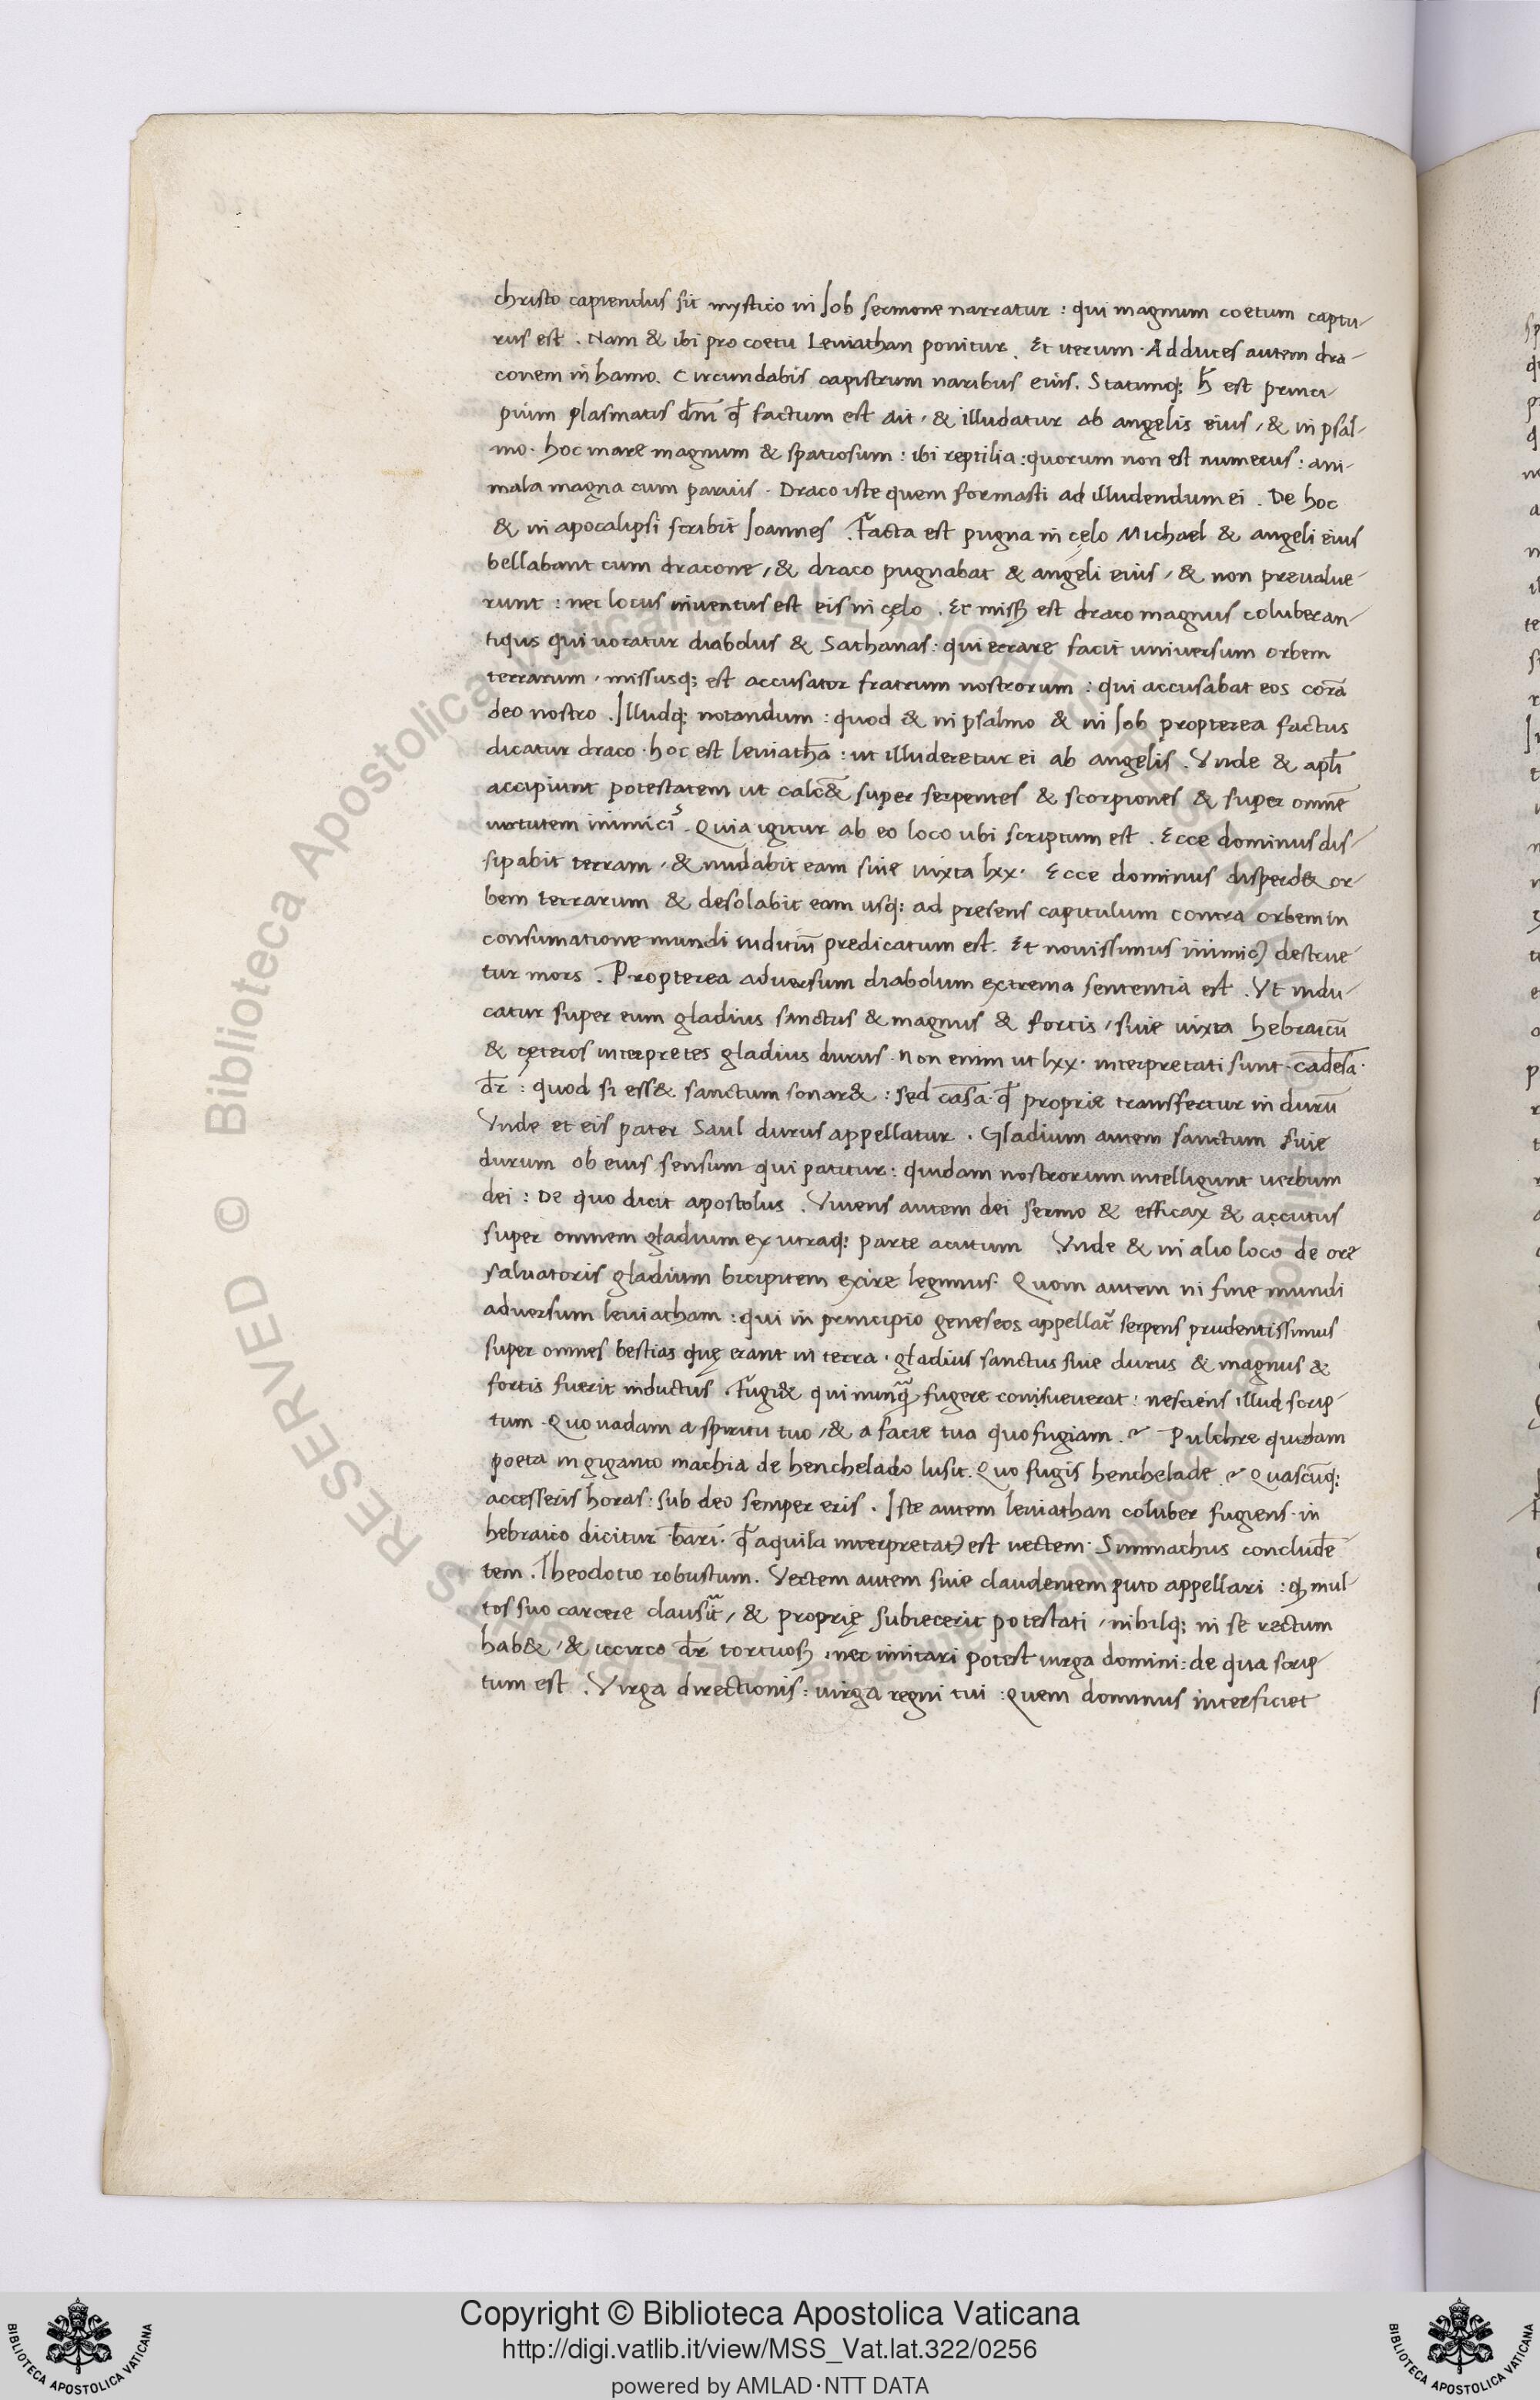 christo capiendus sit mystico in Job sermone narratur : qui magnum coetum captu-
rus est . Nam & ibi pro coetu Leviathan ponitur . Et iterum · Adduces autem dra-
conem in hamo. Circundabis capistrum naribus eius. Statimq; h̅ est princi
pium plasmatis dn̅i qđ factum est ait , & illudatur ab angelis eius , & in psal-
mo · hoc mare magnum & spatiosum : ibi reptilia : quorum non est numerus : ani-
malia magna cum parvis · Draco iste quem formasti ad illudendum ei . De hoc
& in apocalipsi scribit Joannes . Facta est pugna in cęlo Michael & angeli eius
bellabant cum dracone , & draco pugnabat & angeli eius , & non prevalue-
runt : nec locus inventus est eis in cęlo . Et missꝰ est draco magnus coluber an-
tiqus qui vocatur diabolus & Sathanas : qui errare facit universum orbem
terrarum , missusq; est accusator fratrum nostrorum : qui accusabat eos corā
deo nostro . Illudq; notandum : quod & in psalmo & in Job propterea factus
dicatur draco · hoc est leviathā : ut illuderetur ei ab angelis . Vnde & apl̅i
accipiunt potestatem ut calc&̅ super serpentes & scorpiones & super omnē
virtutem inimici . Quia igitur ab eo loco ubi scriptum est . Ecce dominus dis-
sipabit terram , & nudabit eam sive iuxta lxx · Ecce dominus disperd& or-
bem terrarum & desolabit eam usq; ad presens capitulum contra orbem in
consumatione mundi iuditiū predicatum est. Et novissimus inimicꝰ destrue-
tur mors . Propterea adversum diabolum extrema sententia est . Vt indu-
catur super eum gladius sanctus & magnus & fortis , sive iuxta hebraicū
& cęteros interpretes gladius durus · non enim ut lxx · interpretati sunt · cadesa ·
dr̅ : quod si ess& sanctum sonar& : sed casa · qđ proprie transfertur in durū
Vnde et eis pater Saul durus appellatur . Gladium autem sanctum sive
durum ob eius sensum qui patitur : quidam nostrorum intelligunt verbum
dei : De quo dicit apostolus . Vivens autem dei sermo & efficax & accutus
super omnem gladium ex utraq; parte acutum Vnde & in alio loco de ore
salvatoris gladium bicipitem exire legimus . Quom autem in fine mundi
adversum leviatham : qui in principio geneseos appellat᷑ serpens prudentissimus
super omnes bestias quę erant in terra · gladius sanctus sive durus & magnus &
fortis fuerit inductus . Fugi& qui nunq̅ fugere consueverat : nesciens illud scrip-
tum · Quo vadam a spiritu tuo , & a facie tua quo fugiam . Pulchre quidam
poeta in giganto machia de henchelado lusit . Quo fugis henchelade Quascūq;
accesseris horas : sub deo semper eris . Iste autem leviathan coluber fugiens · in
hebraico dicitur · bari · qđ aquila interpretatꝰ est vectem · Simmachus concludē-
tem . Theodotio robustum . Vectem autem sive claudentem puto appellari : qꝫ mul-
tos suo carcere clausit , & proprię subiecerit potestati , nihilq; in se rectum
hab& , & iccirco dr̅ tortuosꝰ , nec imitari potest virga domini : de qua scrip-
tum est . Virga directionis : virga regni tui : Quem dominus interficiet
Copyright © Biblioteca Apostolica Vaticana
http://digi.vatlib.it/view/MSS_Vat.lat.322/0256
powered by AMLAD·NTT DATA